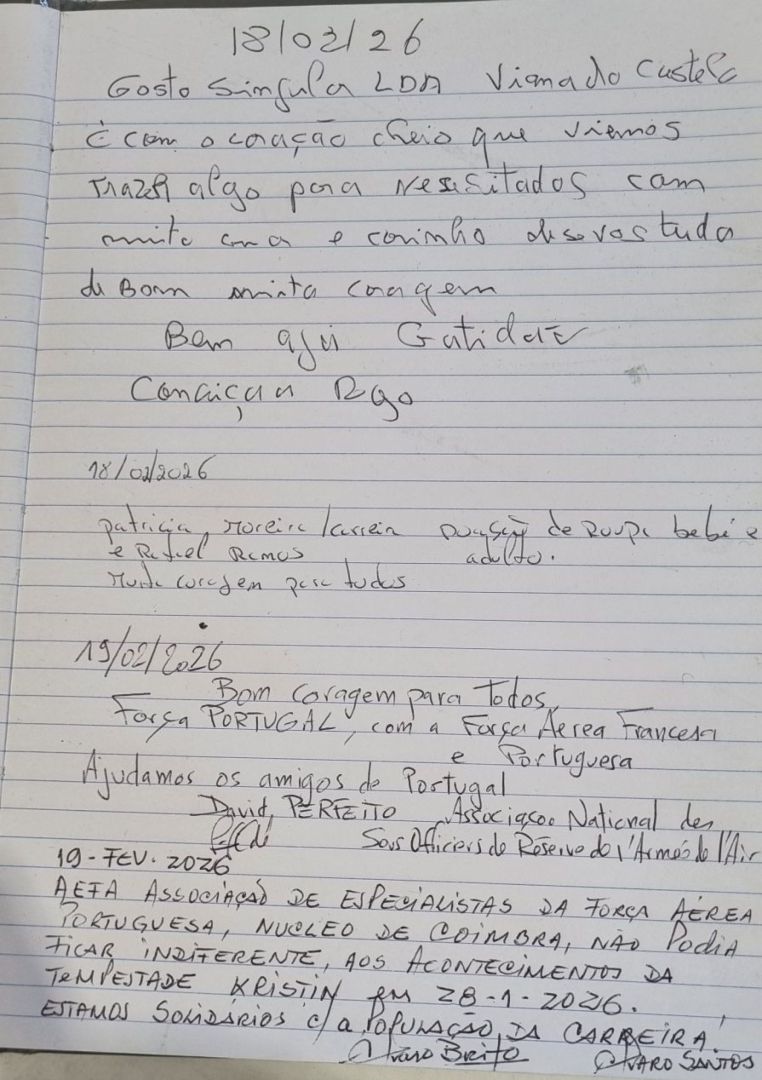 18/02/26
Gosto Singula LDA Viana do Castelo
É com o coração cheio que viemos
Trazer algo para Nesesitados com
muito e carinho tudo
de Bom minta coragem
Bem aja
Rgo
18/02/2026
patricia, Moreira Doação de Roupa bebé e
e Rafael Ramos adulto.
Muita coragem para todos
19/02/2026
Bom coragem para Todos,
Força PORTUGAL, com a Força Aerea Francesa
e Portuguesa
Ajudamos os amigos de Portugal
David, PERFEITO Associaçoo National des
Sous Officiers de Réserve de l'Armée de l'Air
19-FEV. 2026
AEFA ASSOCIAÇAO DE ESPECIALISTAS DA FORÇA AÉREA
PORTUGUESA, NUCLEO DE COIMBRA, NÃO PODIA
FICAR INDIFERENTE, AOS ACONTECIMENTOS DA
TEMPESTADE KRISTIN EM 28-1-2026.
ESTAMOS SOLIDÁRIOS c/ a POPULAÇÃO DA CARREIRA!
Alvaro Brito ALVARO SANTOS